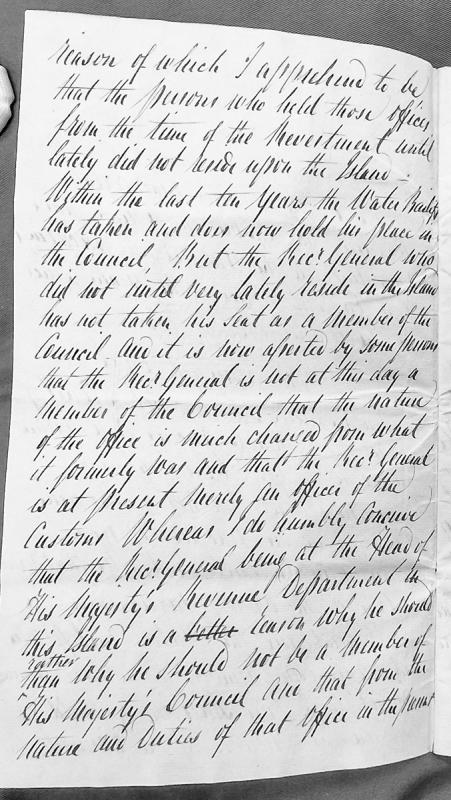 reason of which I apprehend to be
that the persons who held those offices
from the time of the Revestment until
lately did not reside upon the Island.
Within the last ten Years the Water Bailiff
has taken and does now hold his place in
the Council, But the Recr. General who
did not until very lately reside in the Island
has not taken his Seat as a Member of the
Council And it is now asserted by some persons
that the Recr. General is not at this day a
Member of the Council that the nature
of the Office is much changed from what
it formerly was and that the Recr. General
is at present merely an Officer of the
Customs Whereas I do humbly Conceive
that the Recr. General being at the Head of
His Majesty's Revenue Department in
this Island is a better reason why he should
rather
than Why he should not be a Member of
His Majesty's Council and that from the
nature and Duties of that Office in the present